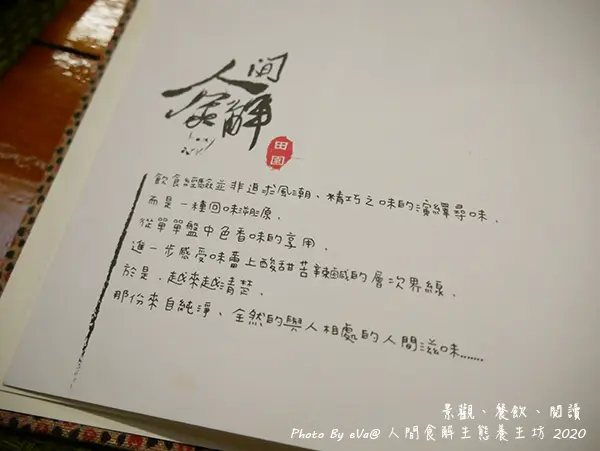 人間
食解
田園
飲食經驗並非追求風潮、精巧之味的演繹尋味，
而是一種回味溯原，
從單單盤中色香味的享用，
進一步感受味蕾上酸甜苦辣鹹的層次界線，
於是，越來越清楚，
那份來自純淨、全然的與人相處的人間滋味......
景觀、餐飲、閱讀
Photo By eVa@ 人間食解生態養生坊 2020